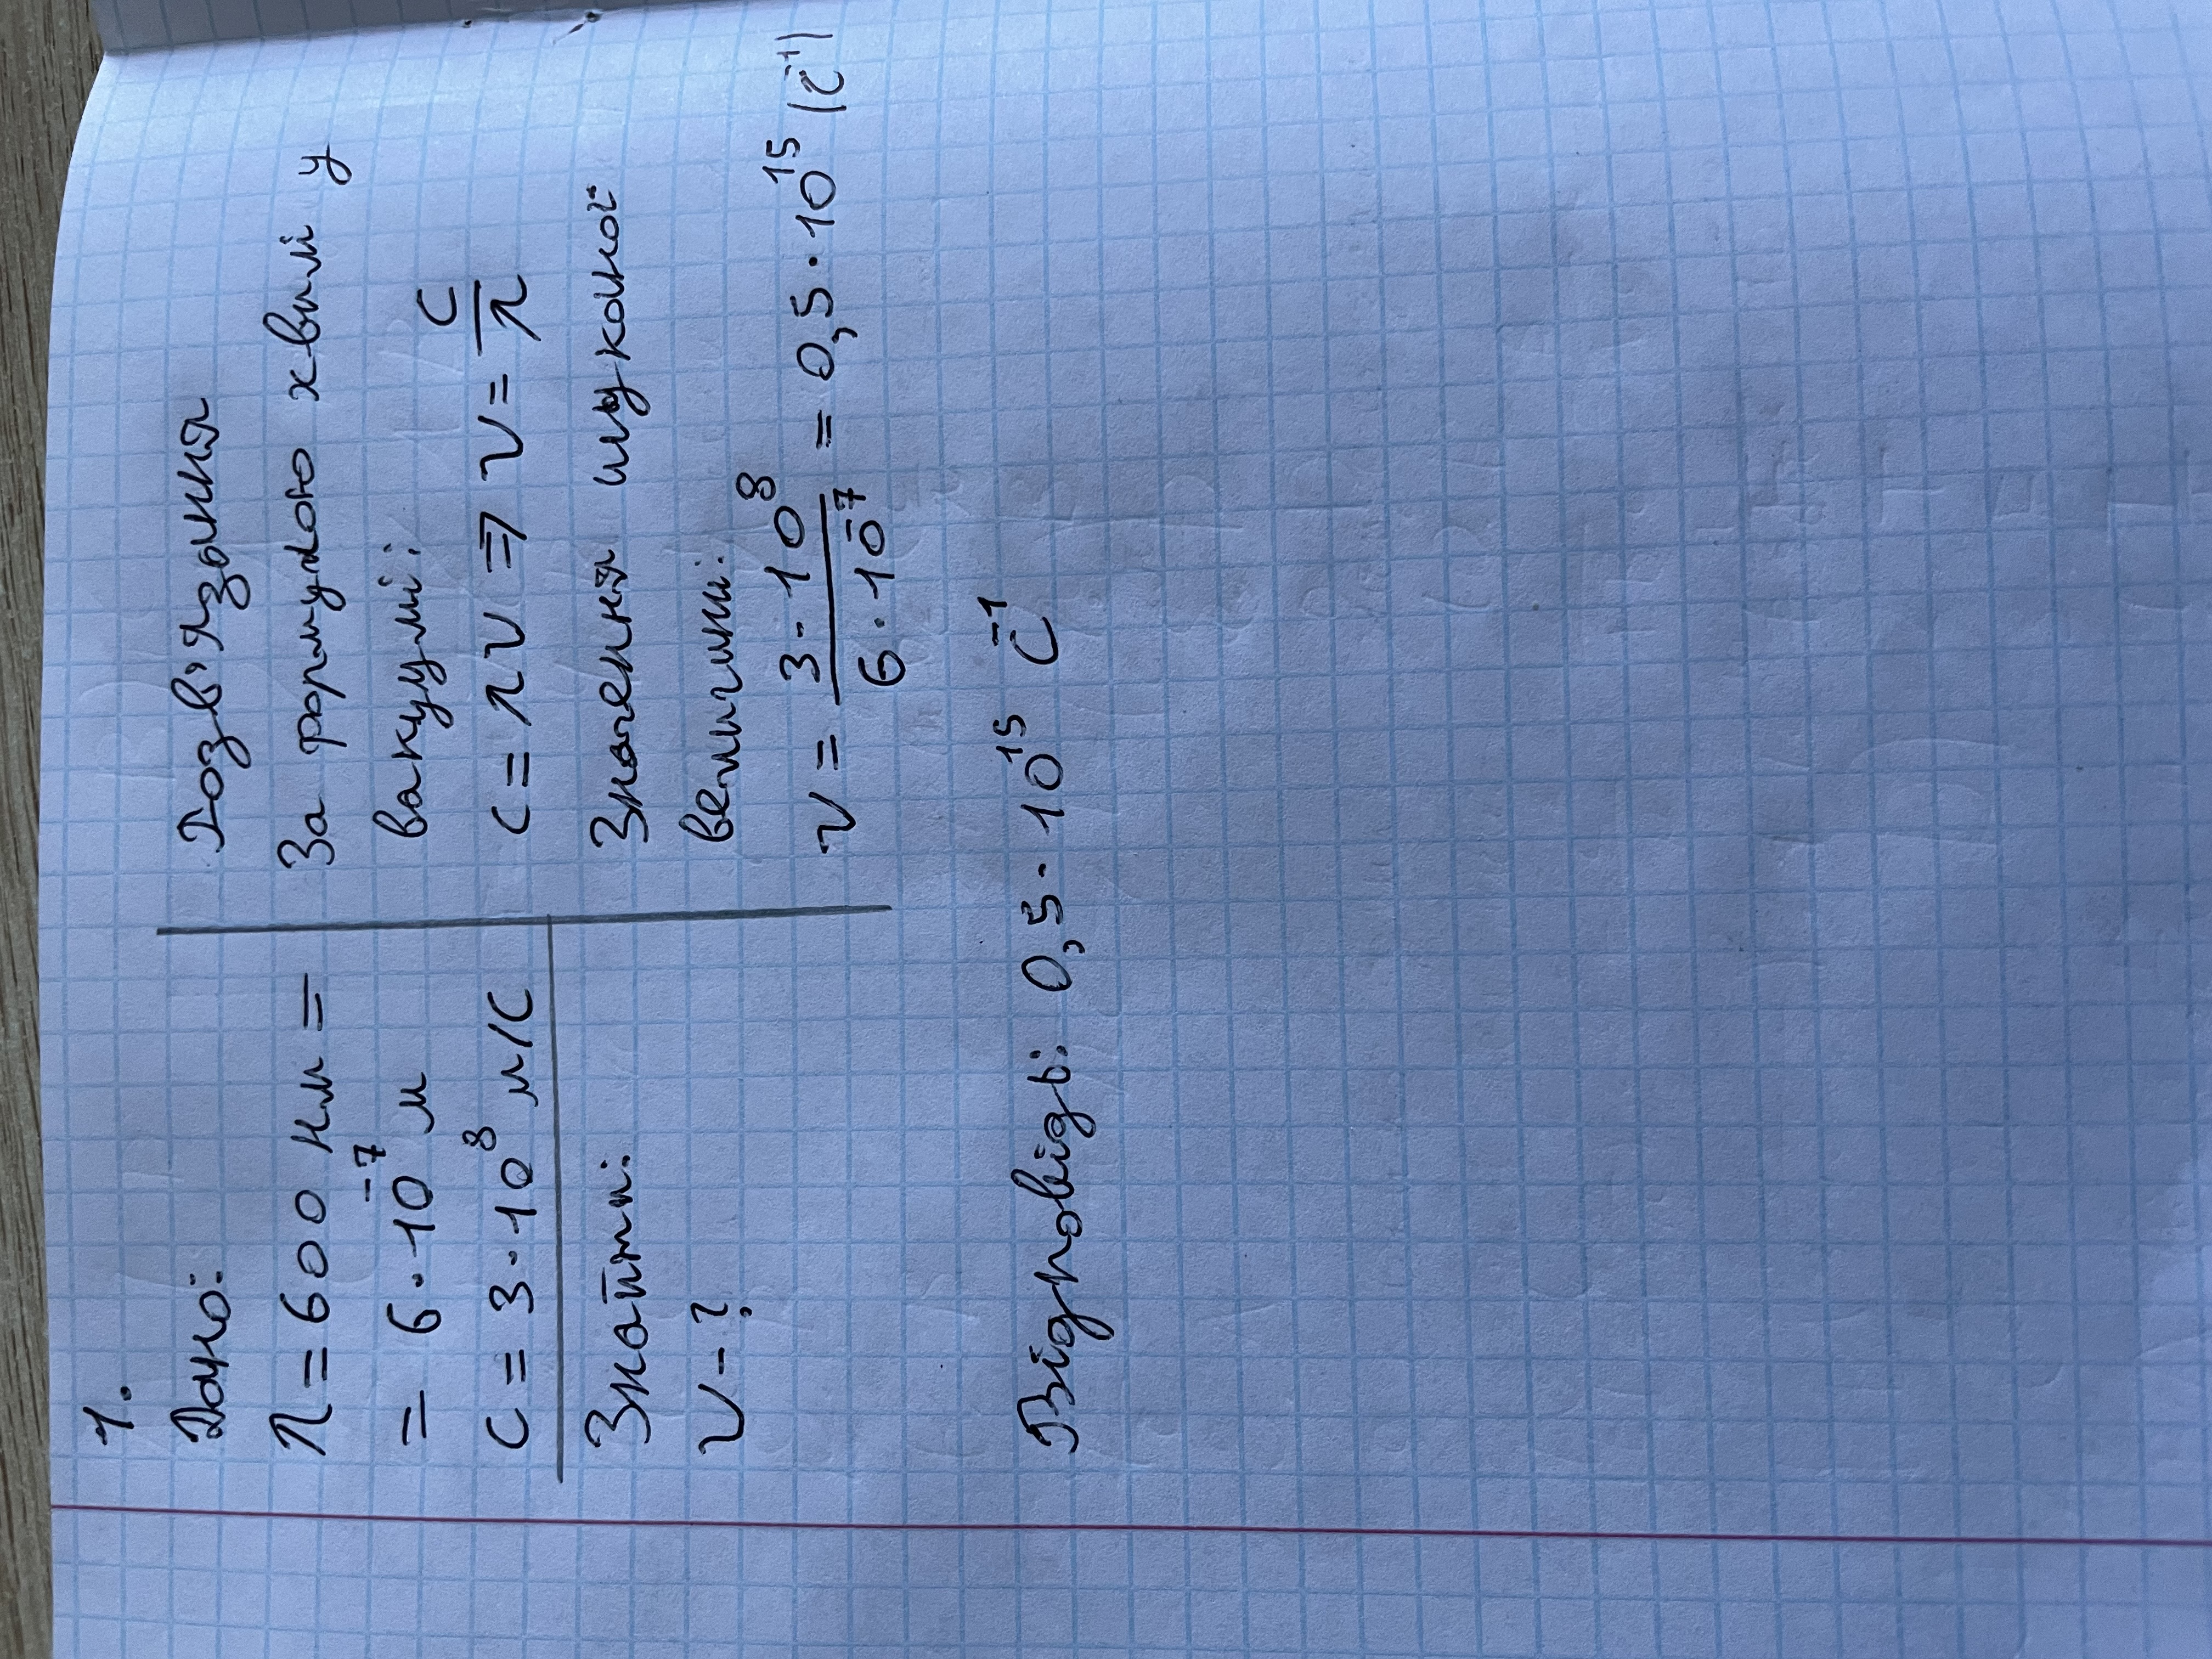 1.
Дано:
λ = 600 нм =
= 6 · 10⁻⁷ м
c = 3 · 10⁸ м/с
Знайти:
ν - ?
Розв'язання
За формулою хвилі у
вакуумі:
c = λν ⇒ ν = c/λ
Значення шуканої
величини:
ν = 3 · 10⁸ / 6 · 10⁻⁷ = 0,5 · 10¹⁵ (с⁻¹)
Відповідь: 0,5 · 10¹⁵ с⁻¹